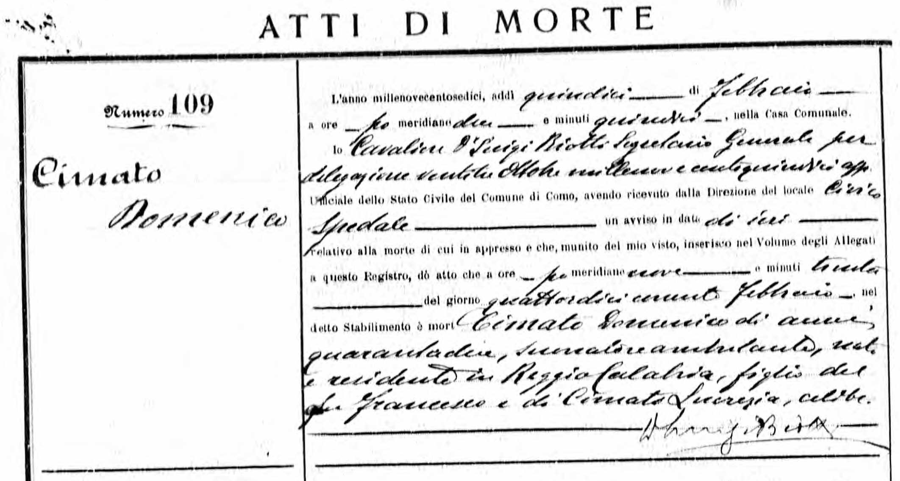 ATTI DI MORTE
Numero 109
Cimato
Domenico
L'anno millenovecentosedici, addì quindici di Febbraio
a ore po meridiane due e minuti quindici, nella Casa Comunale.
Io Cavaliere D. Luigi Biotti Segretario Generale per
delegazione ventitre Ottobre millenovecentoquindici app.
Ufficiale dello Stato Civile del Comune di Como, avendo ricevuto dalla Direzione del locale Civico
Spedale un avviso in data di ieri
relativo alla morte di cui in appresso e che, munito del mio visto, inserisco nel Volume degli Allegati
a questo Registro, dò atto che a ore po meridiane nove e minuti trenta
del giorno quattordici corrente Febbraio, nel
detto Stabilimento è morto Cimato Domenico di anni
quarantadue, suonatore ambulante, nato
e residente in Reggio Calabria, figlio del
fu Francesco e di Cimato Lucrezia, celibe.